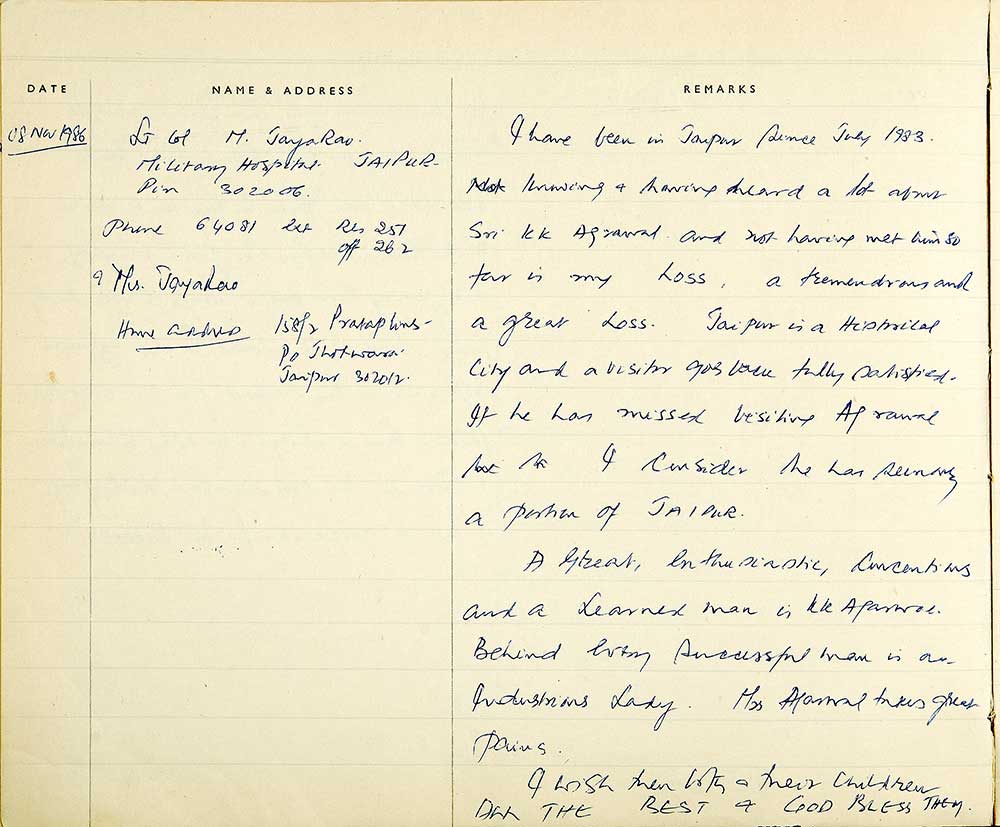 DATE
NAME & ADDRESS
REMARKS
08 Nov 1986
Lt Col M. JayaRao.
Military Hospital JAIPUR
Pin 302006.
Phone 64081 Ext Res 251
Off 262
& Mrs. JayaRao
Home address 158/2
Po Jhotwara
Jaipur 302012.
I have been in Jaipur since July 1983.
Not knowing & having heard a lot about
Sri KK Agrawal and not having met him so
far is my Loss, a tremendous and
a great Loss. Jaipur is a Historical
City and a visitor goes back fully satisfied.
If he has missed visiting Agrawal
I Consider he has
a portion of JAIPUR.
A Great, Enthusiastic,
and a Learned man is KK Agarwal.
Behind Every Successful man is an
Industrious Lady. Mrs Agarwal takes great
pains.
I wish them both & their Children
ALL THE BEST & GOD BLESS THEM.